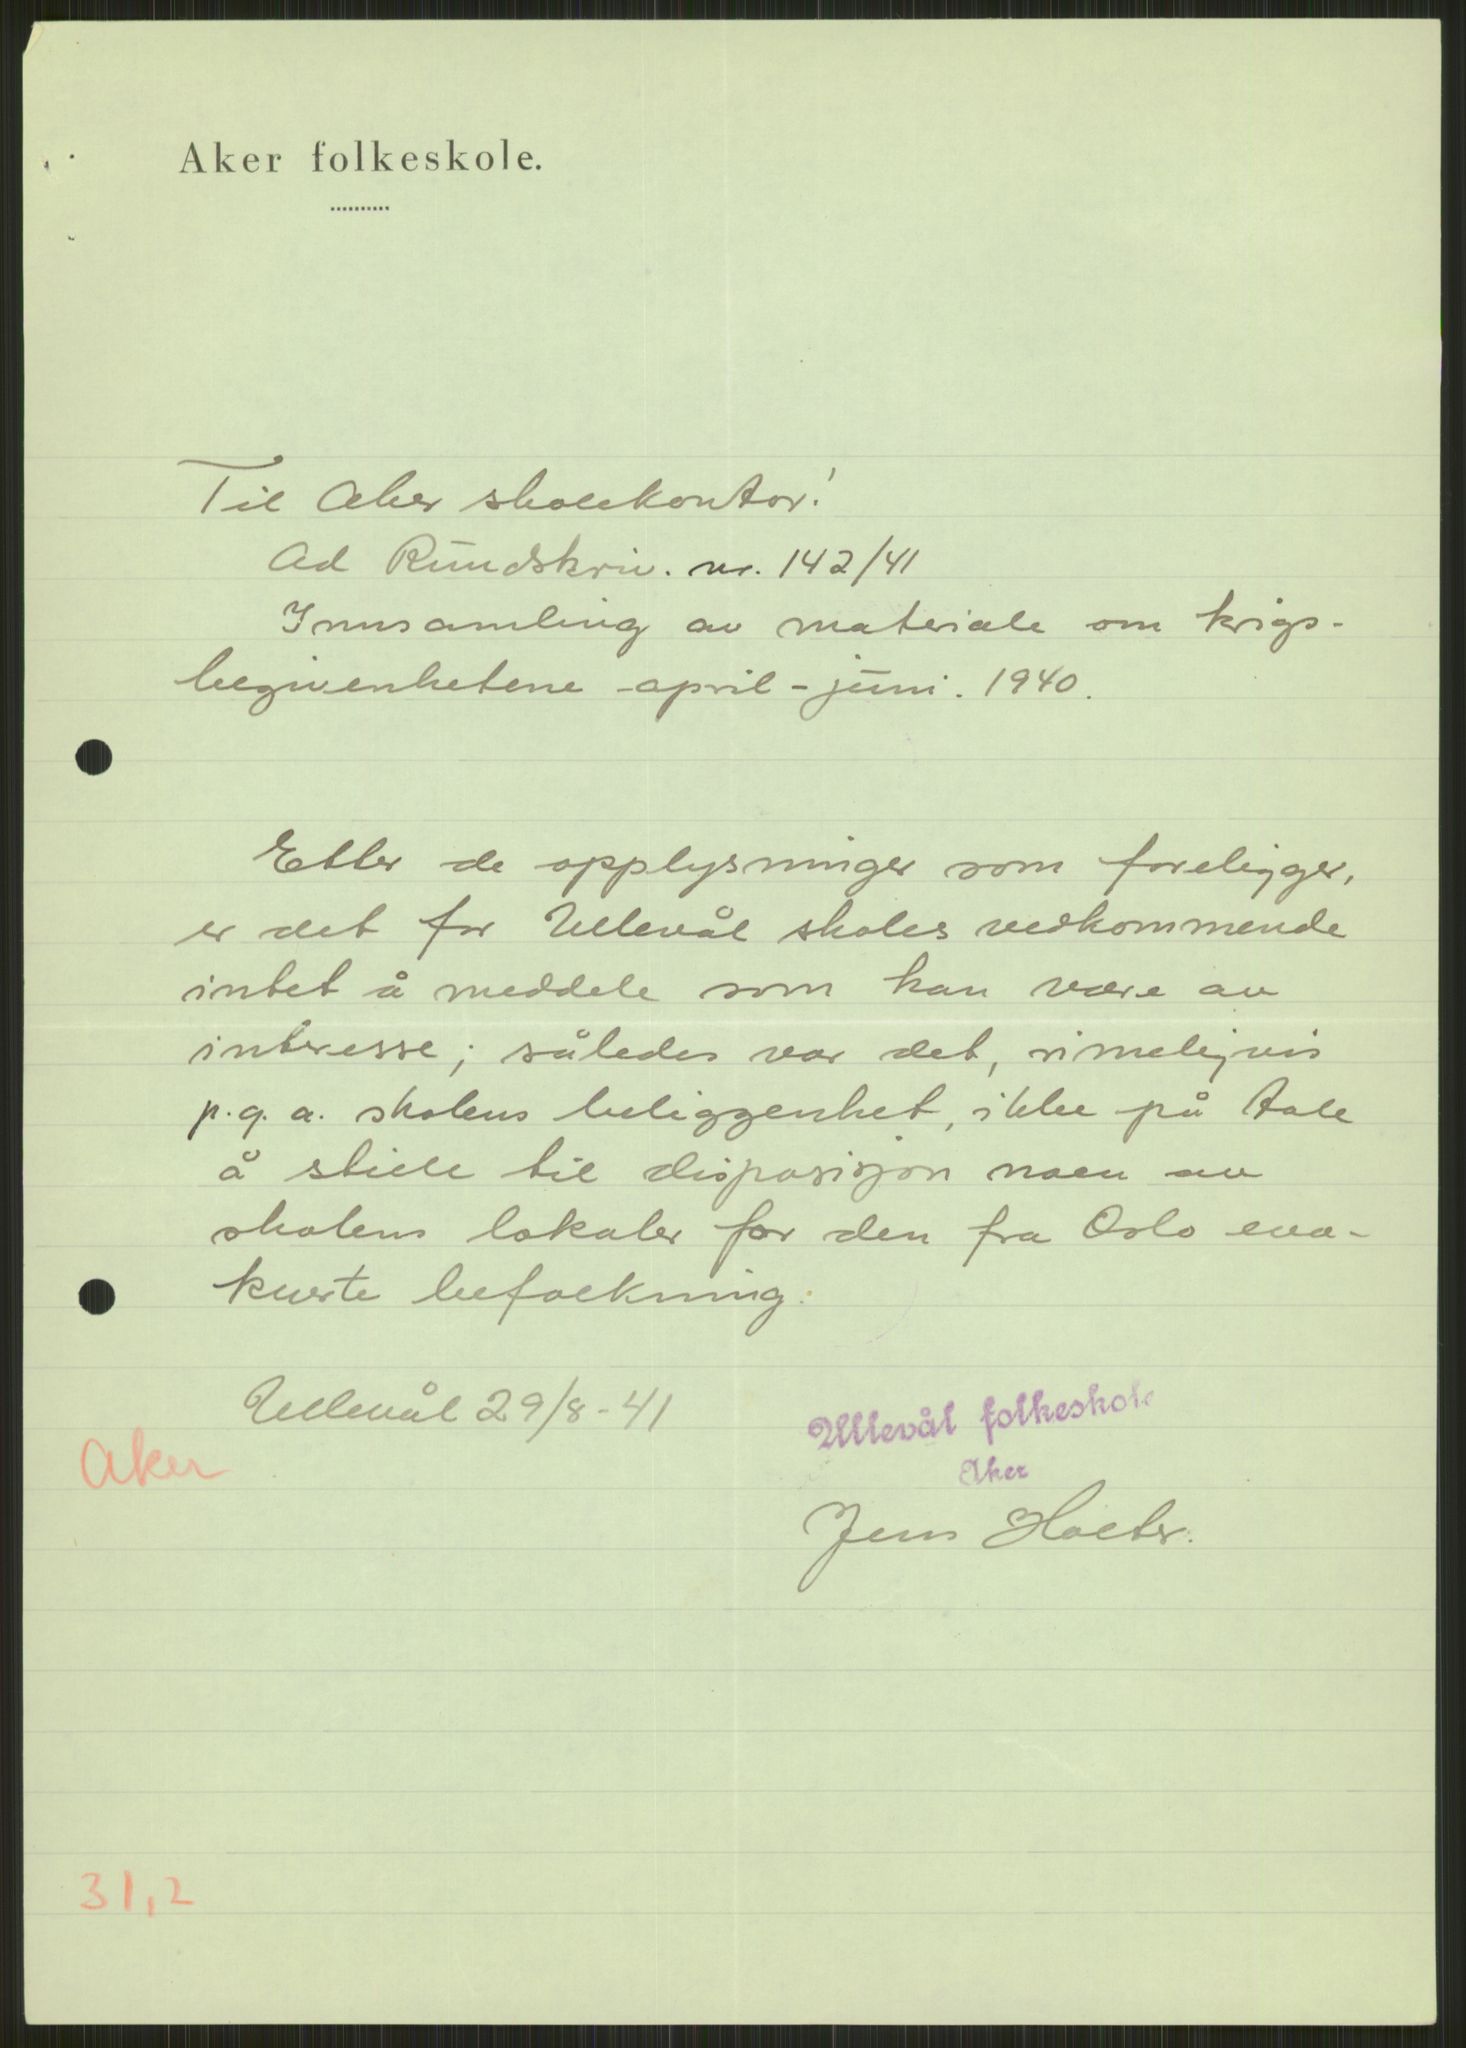 Aker folkeskole.
Til Aker skolekontor!
Ad Rundskriv. nr. 142/41
Innsamling av materiale om krigs-
begivenhetene april-juni. 1940.
Etter de opplysninger som foreligger,
er det for Ullevål skoles vedkommende
intet å meddele som kan være av
interesse; således var det, rimeligvis
p.g.a. skolens beliggenhet, ikke på tale
å stille til disposisjon noen av
skolens lokaler for den fra Oslo eva-
kuerte befolkning.
Ullevål 29/8-41
Ullevål folkeskole
Aker
Aker
Jens Holter.
31,2